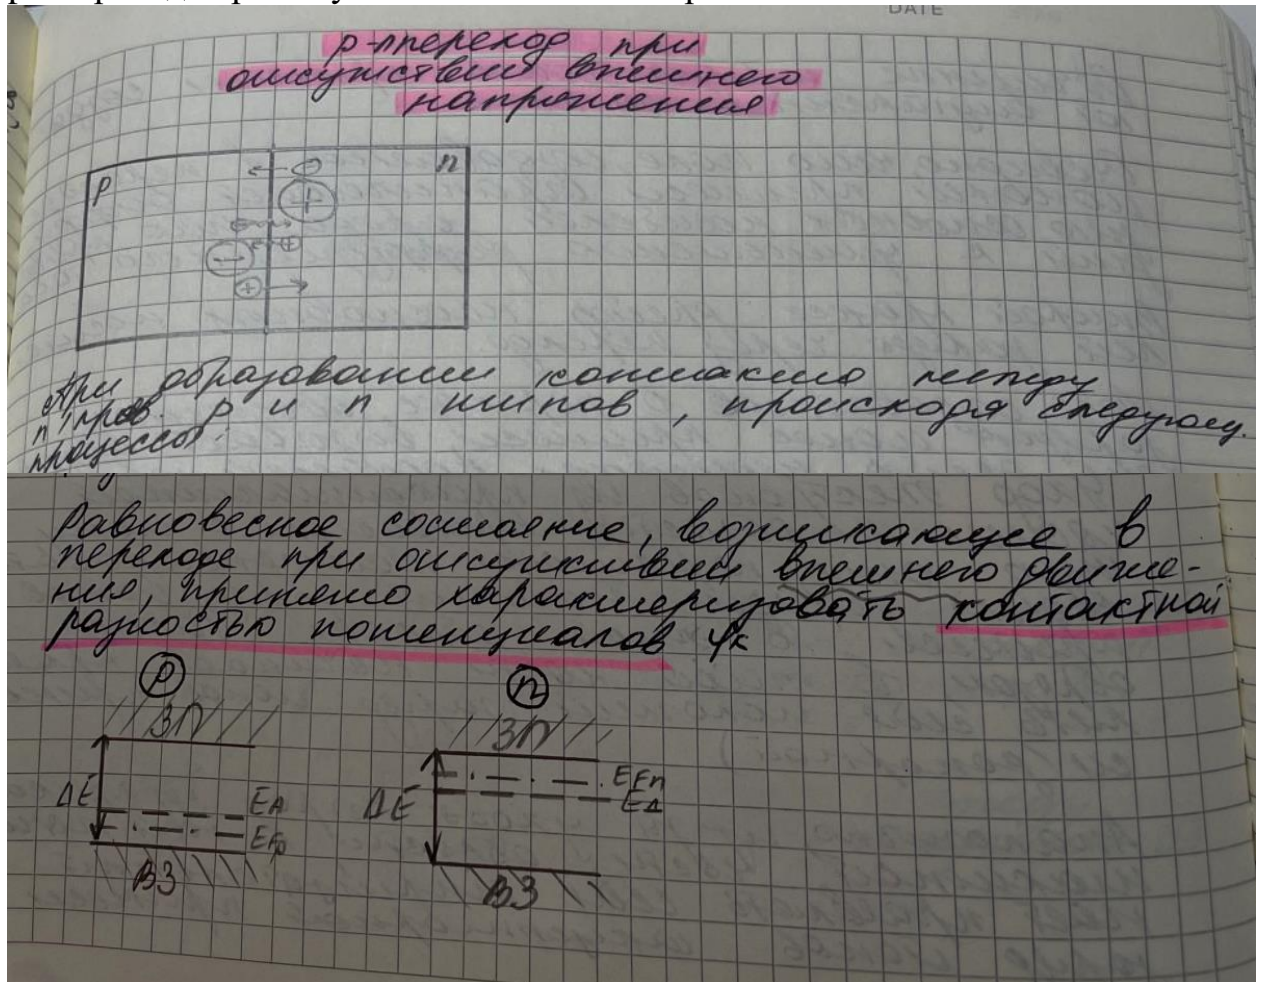 DATE
p-nпереход при
отсутствии внешнего
напряжения
p
n
При образовании контакта между
п/пров. p и n типов, происходя следующ.
процессы:
Равновесное состояние, возникающее в
переходе при отсутствии внешнего движе-
ния, принято характеризовать контактной
разностью потенциалов φк
p
n
ЗП
ЗП
ΔE
EA
EFp
ВЗ
ΔE
EFn
EД
ВЗ